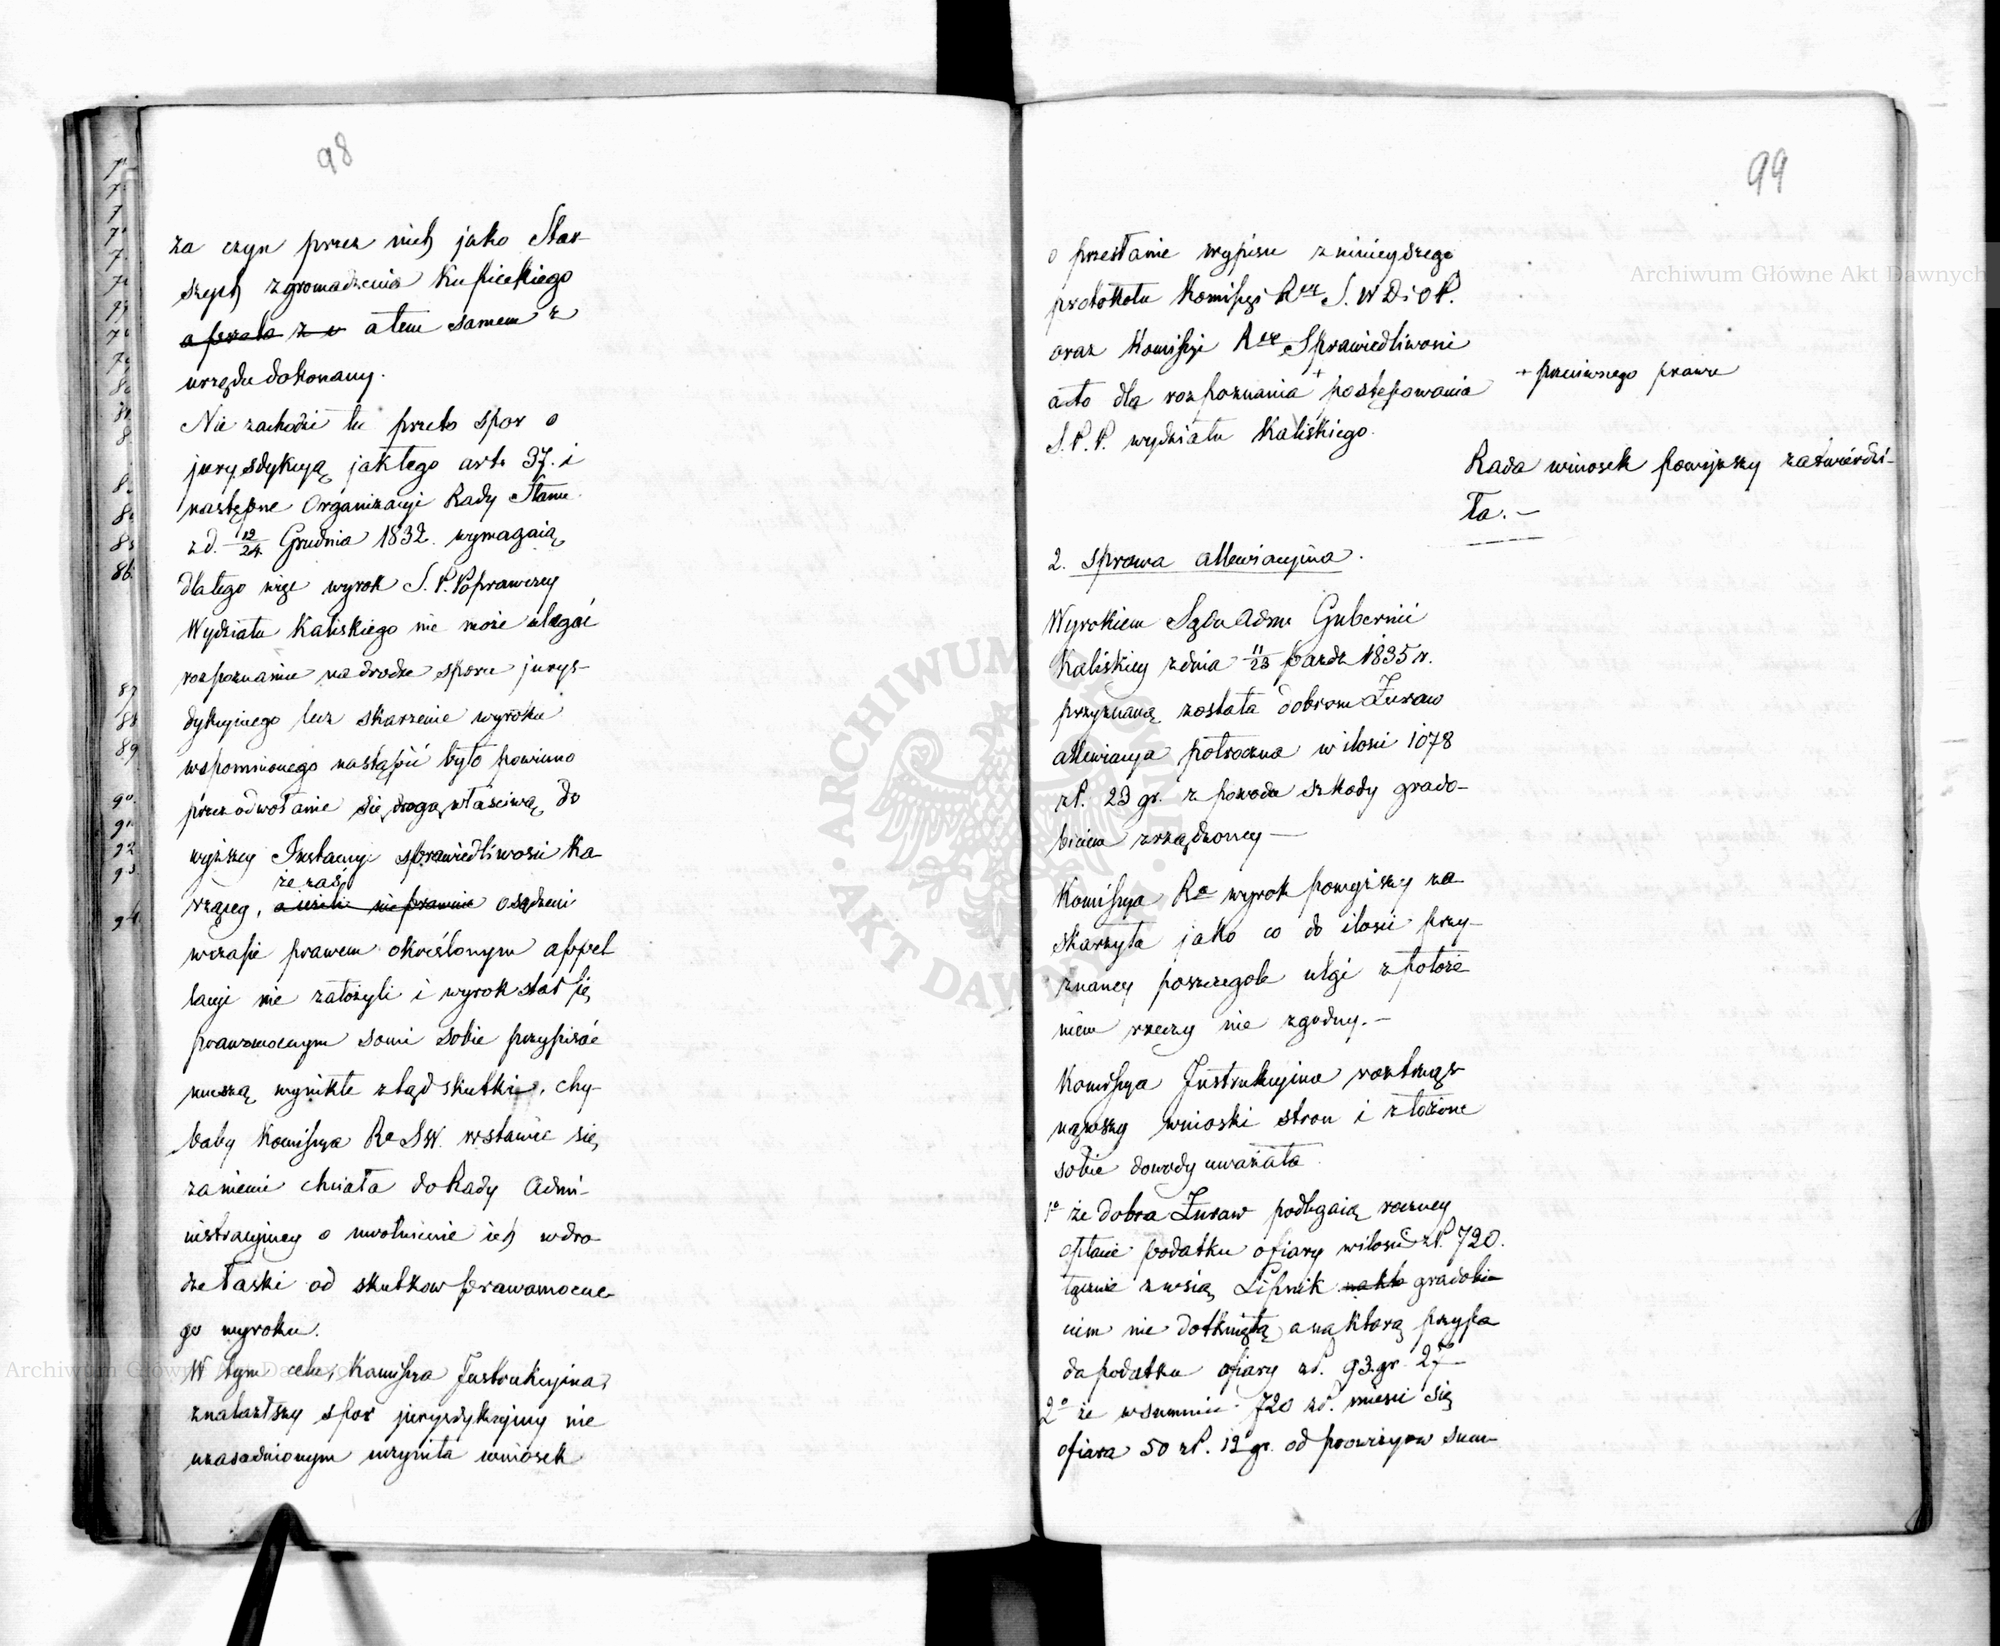 98
za czyn przez nich jako Star-
szych zgromadzenia Kupieckiego
a tem samem z
urzędu dokonany.
Nie zachodzi tu przeto spor o
jurysdykcyą jak tego art. 37. i
następne Organizacyi Rady Stanu
z d. 12/24 Grudnia 1832. wymagaią,
dlatego więc wyrok S. P. Poprawczey
Wydziału Kaliskiego nie może ulegać
rozpoznaniu na drodze sporu jurys-
dykcyinego lecz skarzenie wyroku
wspomnionego nastąpić było powinno
przez odwołanie się drogą właściwą do
wyższey Instancyi sprawiedliwosci Ka-
rzącey, że zaś osądzeni
w czasie prawem określonym appel
lacyi nie założyli i wyrok stał się
prawomocnym sami sobie przypisać
muszą wynikłe ztąd skutki, chy-
baby Komissya Ra SW. wstawić się
za niemi chciała do Rady Admi-
nistracyiney o uwolnienie ich w dro
dze łaski od skutkow prawomocne-
go wyroku.
W tym celu, Komissya Instrukcyina,
znalazłszy spor jurysdykcyiny nie
uzasadnionym uczyniła wniosek
99
o przesłanie wypisu z ninieyszego
protokołu Komissyi Rzer S. W D i O P.
oraz Komissyi Rzer Sprawiedliwosci
a to dla rozpoznania + postępowania
S. P. P. wydziału Kaliskiego.
+ przeciwnego prawu
Rada wniosek powyższy zatwierdzi-
ła. –
2. Sprawa allewiacyina.
Wyrokiem Sądu Adm Gubernii
Kaliskiey z dnia 11/23 Pazdz 1835 r.
przyznaną została dobrom Żuraw
allewiacya połroczna w ilosci 1078
zł. 23 gr. z powodu szkody grado-
biciem zrządzoney —
Komissya Ra wyrok powyższy za
skarżyła jako co do ilosci przy-
znaney ulgi z położe
niem rzeczy nie zgodny. –
Komissya Instrukcyina roztrząs
nąwszy wnioski stron i złożone
sobie dowody uważała
1o że dobra Żuraw podlegaią roczney
opłacie podatku ofiary w ilosci zł. 720.
łącznie z wsią Lipnik gradobi
ciem nie dotkniętą a na ktorą przypa
da podatku ofiary zł. 93 gr. 27
2o że w summie 720 zł. miesci się
ofiara 50 zł. 12 gr. od prowizyow sum-
Archiwum Główne Akt Dawnych
Archiwum Główne Akt Dawnych
ARCHIWUM GŁÓWNE AKT DAWNYCH